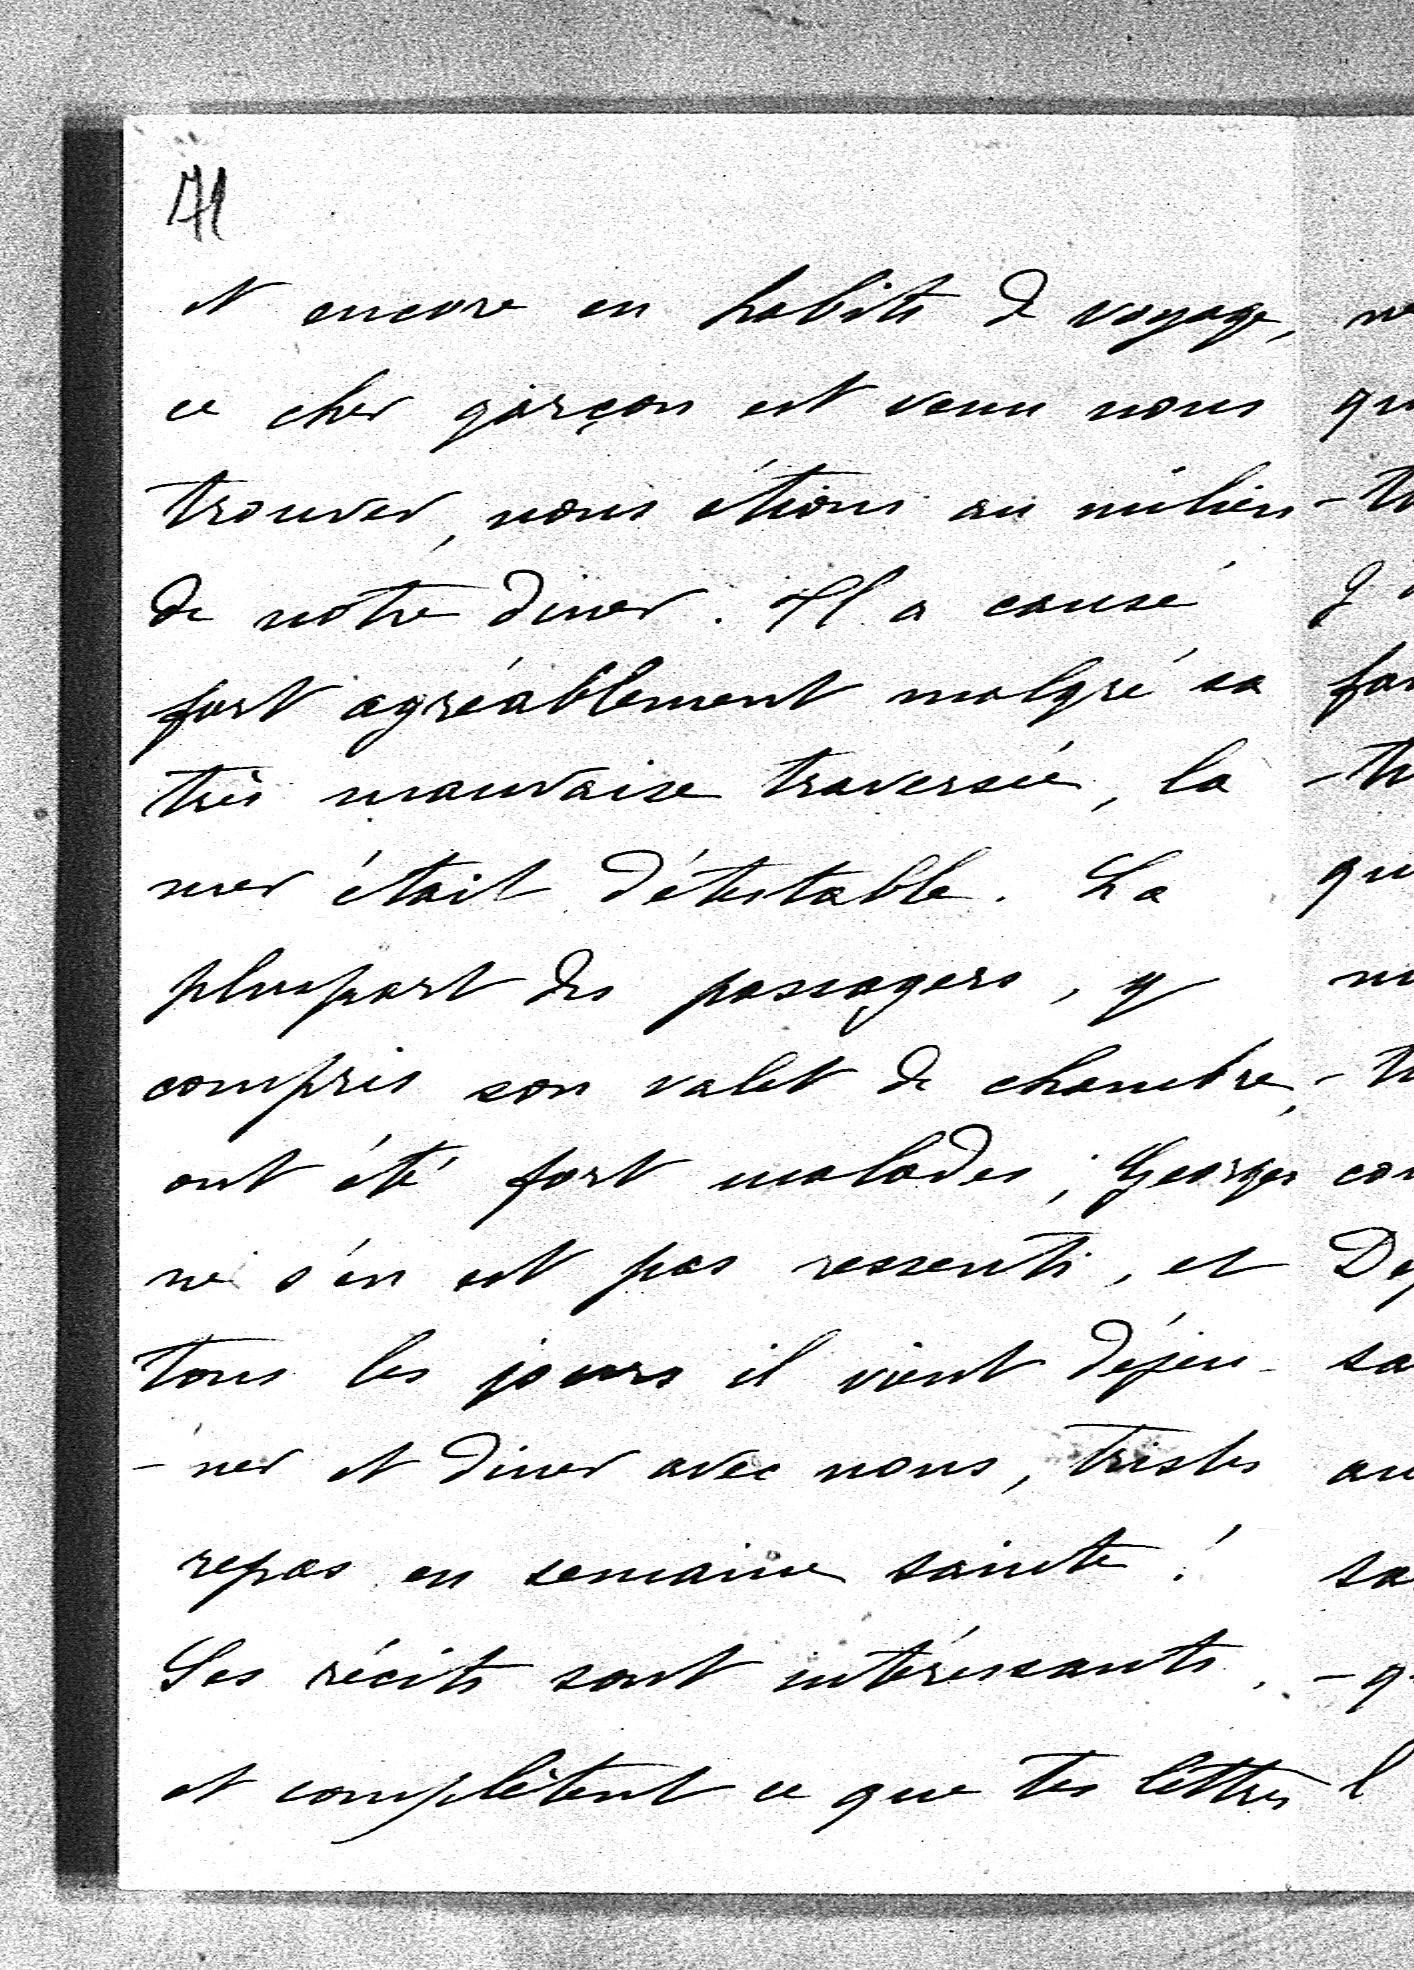 71
et encore en habits de voyage,
ce cher garçon est venu nous
trouver, nous étions au milieu
de notre diner. Il a causé
fort agréablement malgré sa
très mauvaise traversée, la
mer était détestable. La
pluspart des passagers, y
compris son valet de chambre,
ont été fort malades; Georges
ne s'en est pas ressenti, et
tous les jours il vient déjeu-
-ner et diner avec nous, tristes
repas en semaine sainte!
Ses récits sont intéressants.
et complètent ce que tes lettres